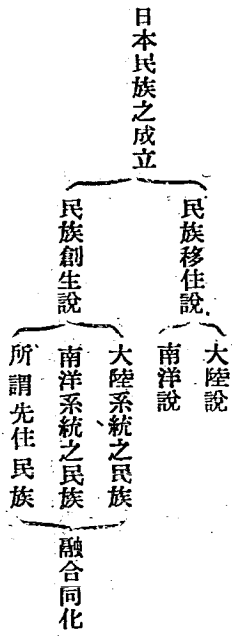 日本民族之成立
民族移住說
大陸說
南洋說
民族創生說
大陸系統之民族
南洋系統之民族
所謂先住民族
融合同化